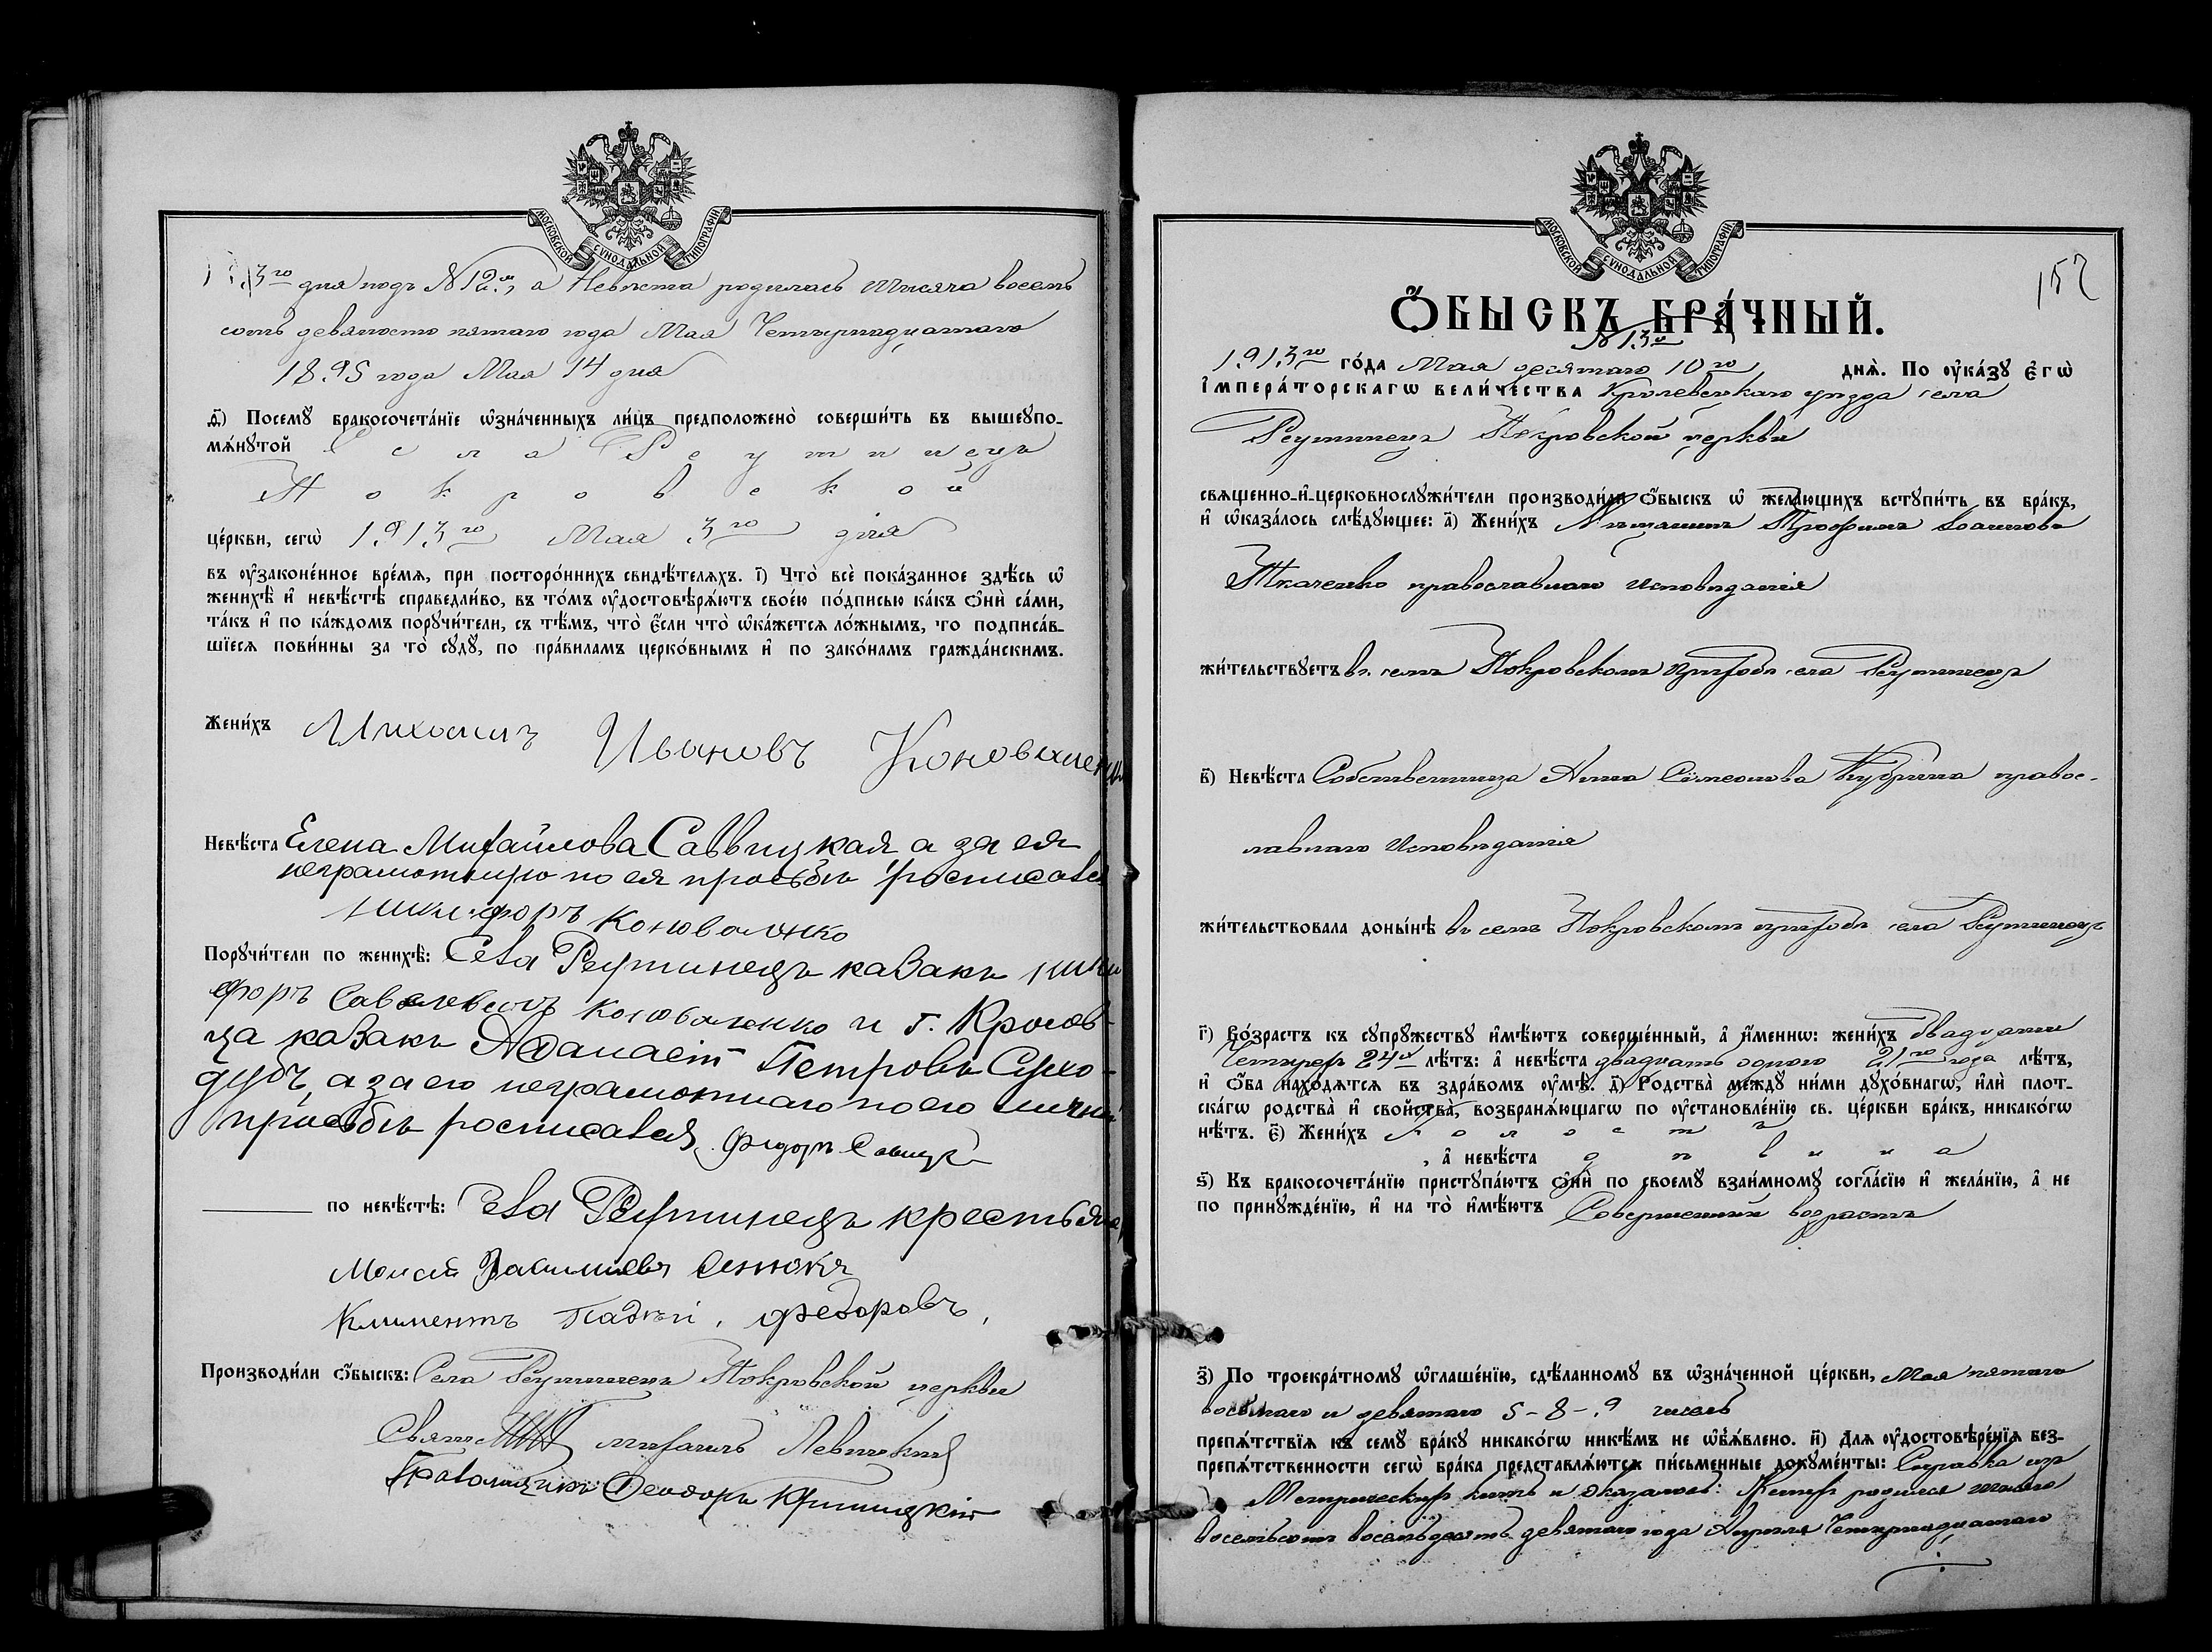 МОСКОВСКОЙ СѴНОДАЛЬНОЙ ТИПОГРАФІИ
13го дня подъ №12м, а Невѣста родилась тысяча восемь
сотъ девяносто пятаго года Мая Четырнадцатаго
1895 года Мая 14 дня
д҃і) Посемꙋ бракосочета́нїе ѡзна́ченныхъ ли́цъ предположено̀ соверши́ть въ вышеꙋпо-
мѧ́нꙋтой Села Реутинецъ
Покровской
це́ркви, сегѡ̀ 1913го Мая 3го дня
въ ᲂу҆законе́нное вре́мѧ, при посторо́ннихъ свидѣ́телѧхъ. і҃) Что̀ всѐ пока́занное здѣ́сь ѡ҆
женихѣ̀ и҆ невѣ́стѣ справедли́во, въ то́мъ ᲂу҆достовѣрѧ́ютъ свое́ю по́дписью ка́къ ѻ҆нѝ са́ми,
та́къ и҆ по ка́ждомъ порꙋчи́тели, съ тѣ́мъ, что̀ є҆́сли что̀ ѡ҆ка́жетсѧ ло́жнымъ, то подписа́в-
шїесѧ пови́нны за то̀ сꙋдꙋ̀, по пра́виламъ церко́внымъ и҆ по зако́намъ гражда́нскимъ.
Жени́хъ Михаилъ Ивановъ Коноваленко
Невѣ́ста Елена Михайлова Саввицкая а за ея
неграмотную по ея просьбѣ росписался
Никифоръ Коноваленко
Порꙋчи́тели по женихѣ̀: Села Реутинецъ казакъ Ники
форъ Савельевичъ Коноваленко и г. Кролев-
ца казакъ Афанасій Петровъ Сухо-
дубъ, а за его неграмотнаго по его личной
просьбѣ росписался Федоръ Савицкій
по невѣ́стѣ: Села Реутинецъ крестьяне
Моисей Васильевъ Сенюкъ
Климентъ Гладкій, Федоровъ,
Производи́ли ѻ҆́быскъ: Села Реутинецъ Покровской церкви
Свящ Михаилъ Левицкій
Псаломщикъ Ѳеодоръ Криницкій
МОСКОВСКОЙ СѴНОДАЛЬНОЙ ТИПОГРАФІИ
157
Ѻ҆́БЫСКЪ БРА́ЧНЫЙ.
№ 13й
1913го го́да Мая десятаго 10го днѧ̀. По ᲂу҆ка́зꙋ Є҆гѡ̀
І҆мпера́торскагѡ вели́чества Кролевецкаго уѣзда села
Реутинецъ Покровской церкви
свѧщенно-и҆-церковнослꙋжи́тели производи́ли ѻ҆́быскъ ѡ҆ жела́ющихъ встꙋпи́ть въ бра́къ,
и҆ ѡ҆каза́лось слѣ́дꙋющее: а҃) Жени́хъ Мѣщанинъ Трофимъ Іоанновъ
Ткаченко православнаго исповѣданія
жи́тельствꙋетъ въ селѣ Покровскомъ приходѣ села Реутинецъ
в҃) Невѣ́ста Собственница Анна Симеонова правос-
лавнаго исповѣданія
жи́тельствовала доны́нѣ въ селѣ Покровскомъ приходѣ села Реутинецъ
г҃) Во́зрастъ къ сꙋпрꙋ́жествꙋ и҆мѣ́ютъ соверше́нный, а҆ и҆́менно: жени́хъ двадцати
Четырехъ 24хъ лѣ́тъ: а҆ невѣ́ста двадцать одного 21го года лѣ́тъ,
и҆ ѻ҆́ба нахо́дѧтсѧ въ здра́вомъ ᲂу҆мѣ̀. д҃) Родства̀ междꙋ̀ ни́ми дꙋхо́внагѡ, и҆лѝ плот-
ска́гѡ родства̀ и҆ свойства̀, возбранѧ́ющагѡ по ᲂу҆становле́нїю св. це́ркви бра́къ, никако́гѡ
нѣ́тъ. є҃) Жени́хъ холостъ
, а҆ невѣ́ста дѣвица
ѕ҃) Къ бракосочета́нїю пристꙋпа́ютъ ѻ҆нѝ по своемꙋ̀ взаи́мномꙋ согла́сїю и҆ жела́нїю, а҆ не
по принꙋжде́нїю, и҆ на то̀ и҆мѣ́ютъ Совершенный возрастъ
з҃) По троекра́тномꙋ ѡ҆глаше́нїю, сдѣ́ланномꙋ въ ѡ҆зна́ченной це́ркви, Мая пятаго
восьмаго и девятаго 5-8-9 чиселъ
препѧ́тствїѧ къ семꙋ̀ бра́кꙋ никако́гѡ никѣ́мъ не ѡ҆б̾ѧ́влено. и҃) Длѧ ᲂу҆достовѣре́нїѧ без-
препѧ́тственности сегѡ̀ бра́ка представлѧ́ютсѧ пи́сьменные докꙋме́нты: Справка изъ
Метрическихъ книгъ и оказалось: Женихъ родился тысяча
восемьсотъ восемьдесятъ девятаго года Апрѣля Четырнадцатаго